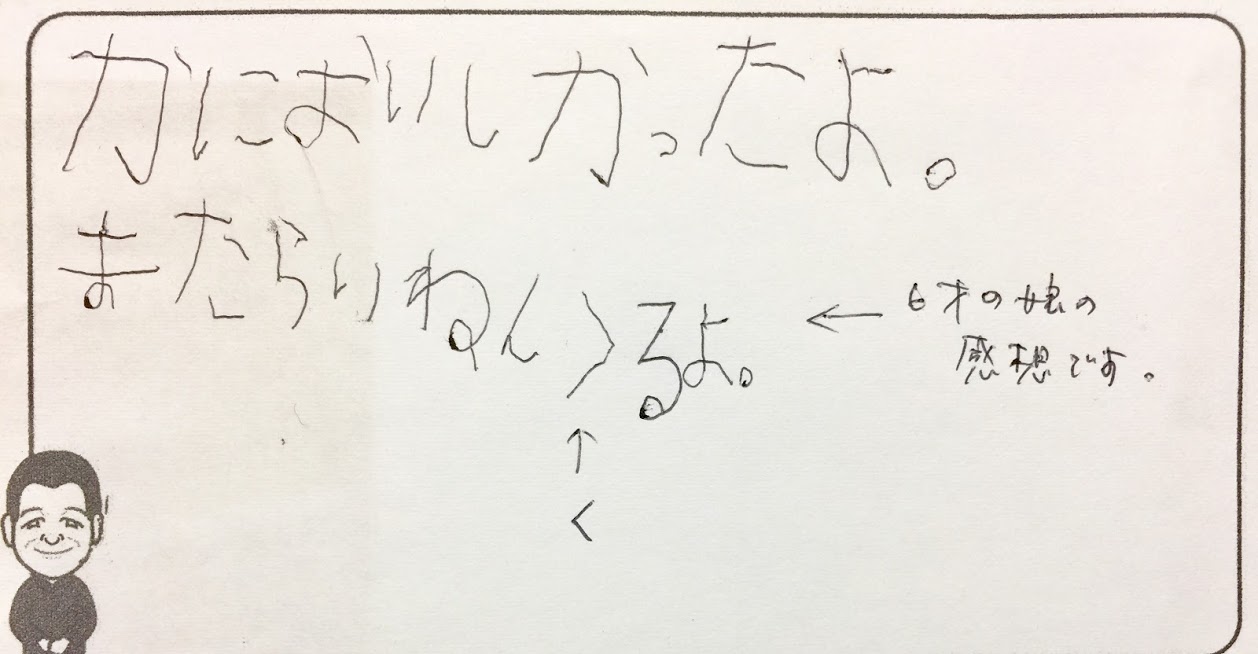 かにおいしかったよ。
またらいねんくるよ。
← 6才の娘の
感想です。
↑
く